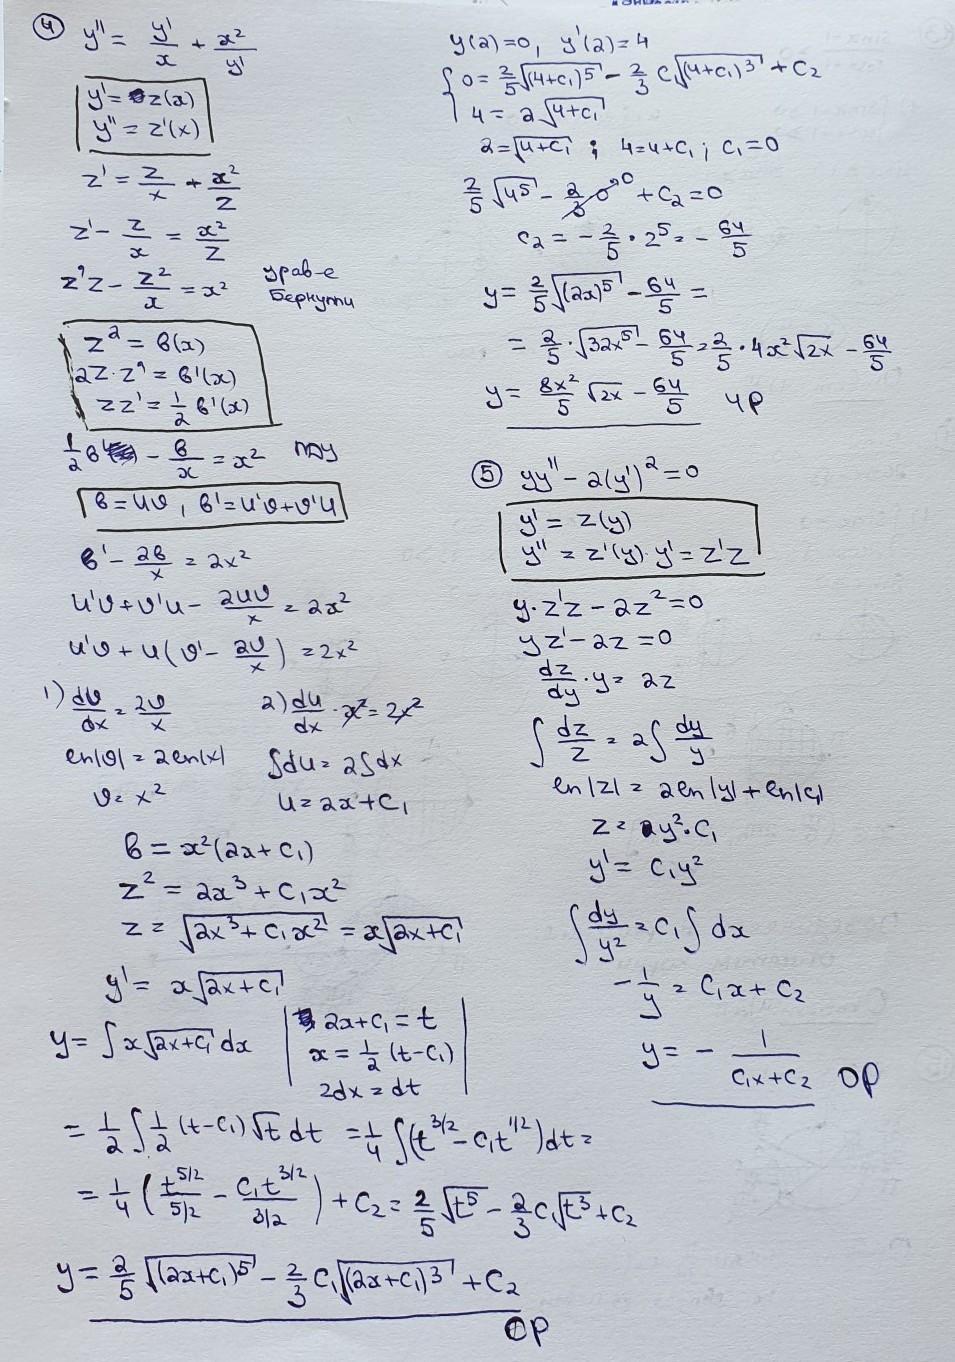 ④ y'' = y'/x + x²/y'
y' = z(x)
y'' = z'(x)
z' = z/x + x²/z
z' - z/x = x²/z
z'z - z²/x = x² урав-е Бернулли
z² = b(x)
2z·z' = b'(x)
zz' = 1/2 b'(x)
1/2 b' - b/x = x² ЛДУ
b = uv, b' = u'v + v'u
b' - 2b/x = 2x²
u'v + v'u - 2uv/x = 2x²
u'v + u(v' - 2v/x) = 2x²
1) dv/dx = 2v/x
ln|v| = 2ln|x|
v = x²
2) du/dx · x² = 2x²
∫du = 2∫dx
u = 2x + C₁
b = x²(2x + C₁)
z² = 2x³ + C₁x²
z = √(2x³ + C₁x²) = x√(2x + C₁)
y' = x√(2x + C₁)
y = ∫x√(2x + C₁) dx
2x + C₁ = t
x = 1/2 (t - C₁)
2dx = dt
= 1/2 ∫ 1/2 (t - C₁)√t dt = 1/4 ∫(t^(3/2) - C₁t^(1/2))dt =
= 1/4 (t^(5/2)/(5/2) - C₁t^(3/2)/(3/2)) + C₂ = 2/5 √t⁵ - 2/3 C₁√t³ + C₂
y = 2/5 √((2x + C₁)⁵) - 2/3 C₁√((2x + C₁)³) + C₂
ОР
y(2) = 0, y'(2) = 4
{ 0 = 2/5 √((4 + C₁)⁵) - 2/3 C₁√((4 + C₁)³) + C₂
4 = 2√(4 + C₁)
2 = √(4 + C₁) ; 4 = 4 + C₁ ; C₁ = 0
2/5 √4⁵ - 2/3 · 0 → 0 + C₂ = 0
C₂ = - 2/5 · 2⁵ = - 64/5
y = 2/5 √((2x)⁵) - 64/5 =
= 2/5 · √(32x⁵) - 64/5 = 2/5 · 4x²√2x - 64/5
y = 8x²/5 √2x - 64/5 ЧР
⑤ yy'' - 2(y')² = 0
y' = z(y)
y'' = z'(y)·y' = z'z
y·z'z - 2z² = 0
yz' - 2z = 0
dz/dy · y = 2z
∫ dz/z = 2∫ dy/y
ln|z| = 2ln|y| + ln|C₁|
z = y²·C₁
y' = C₁y²
∫ dy/y² = C₁∫dx
- 1/y = C₁x + C₂
y = - 1/(C₁x + C₂) ОР